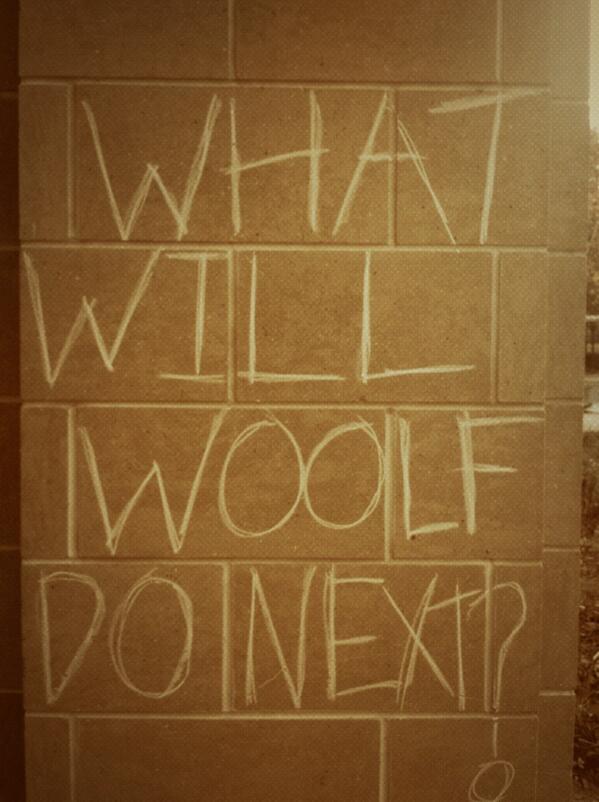 WHAT
WILL
WOOLF
DO NEXT?